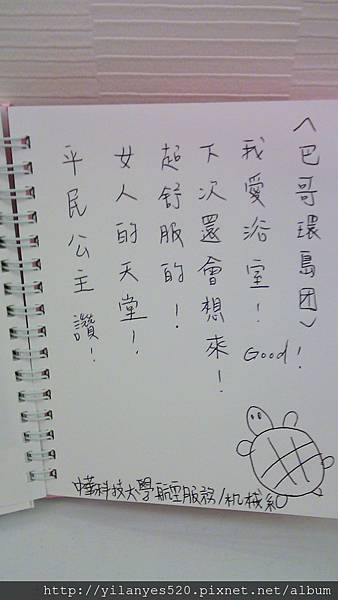 〈巴哥環島团〉
我愛浴室！Good！
下次還會想來！
超舒服的！
女人的天堂！
平民公主 讚！
中華科技大學航空服務/机械系
http://yilanyes520.pixnet.net/album